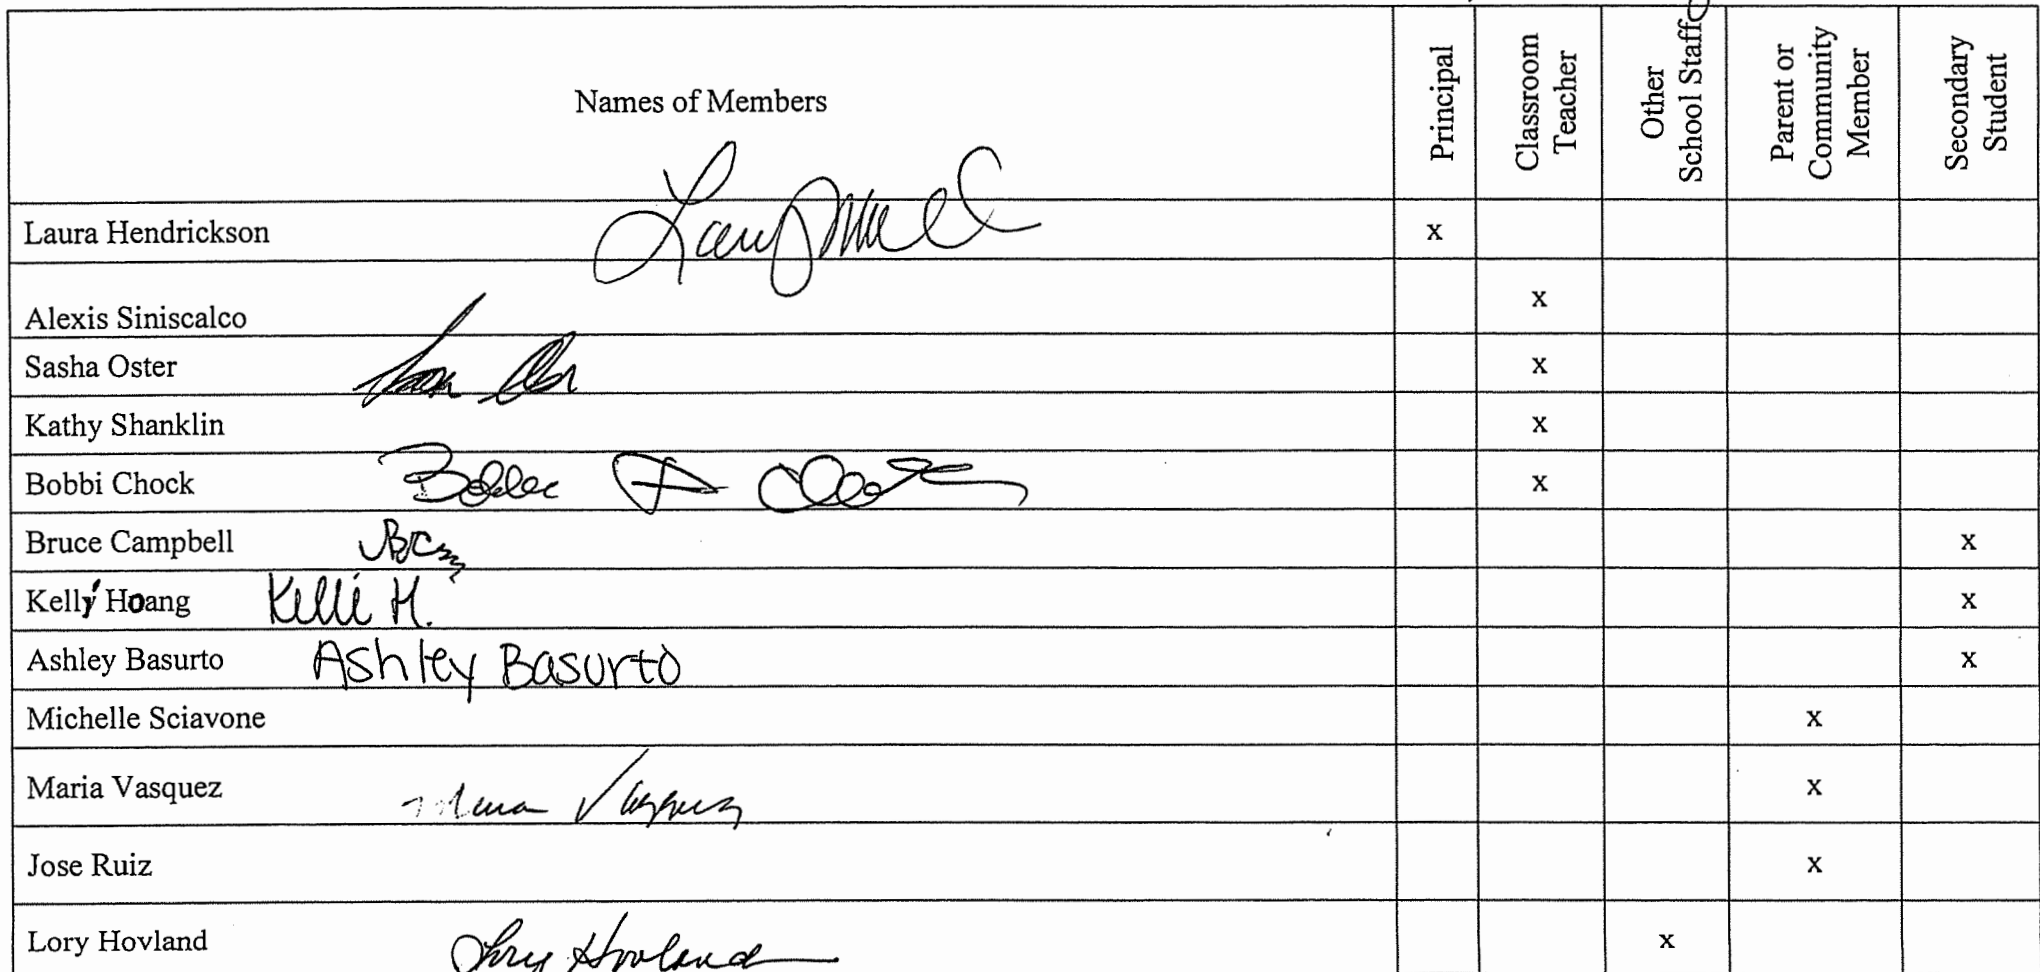 Names of Members Principal Classroom Teacher Other School Staff Parent or Community Member Secondary Student
Laura Hendrickson x
Alexis Siniscalco x
Sasha Oster x
Kathy Shanklin x
Bobbi Chock Bobbie x
Bruce Campbell x
Kelli Hoang Kelli H. x
Ashley Basurto Ashley Basurto x
Michelle Sciavone x
Maria Vasquez Maria Vasquez x
Jose Ruiz x
Lory Hovland Lory Hovland x